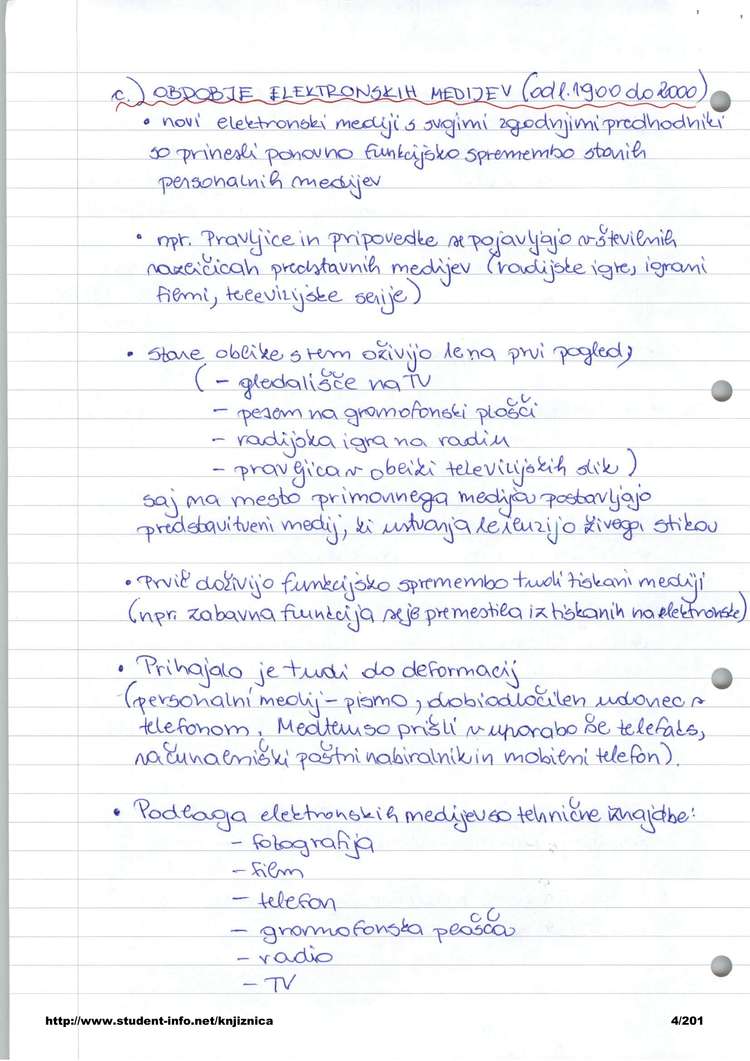 c.) OBDOBJE ELEKTRONSKIH MEDIJEV (od l. 1900 do 2000)
• novi elektronski mediji s svojimi zgodnjimi predhodniki
so prinesli ponovno funkcijsko spremembo starih
personalnih medijev
• npr. Pravljice in pripovedke se pojavljajo v številnih
različicah predstavnih medijev (radijske igre, igrani
filmi, televizijske serije)
• stare oblike s tem oživijo le na prvi pogled,
( - gledališče na TV
- pesem na gramofonski plošči
- radijska igra na radiu
- pravljica v obliki televizijskih slik )
saj na mesto primarnega medija postavljajo
predstavitveni medij, ki ustvarja le iluzijo živega stikov
• Prvič doživijo funkcijsko spremembo tudi tiskani mediji
(npr. zabavna funkcija se je premestila iz tiskanih na elektronske)
• Prihajalo je tudi do deformacij
(personalni medij - pismo, dobi odločilen udarec s
telefonom. Medtem so prišli v uporabo še telefaks,
računalniški poštni nabiralnik in mobilni telefon).
• Podlaga elektronskih medijev so tehnične iznajdbe:
- fotografija
- film
- telefon
- gramofonska plošča
- radio
- TV
http://www.student-info.net/knjiznica 4/201